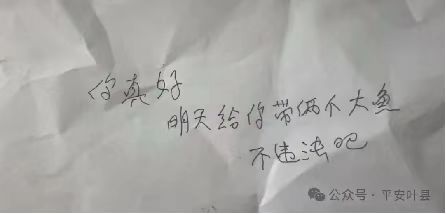 你真好
明天给你带俩个大鱼
不违法吧
公众号·平安叶县